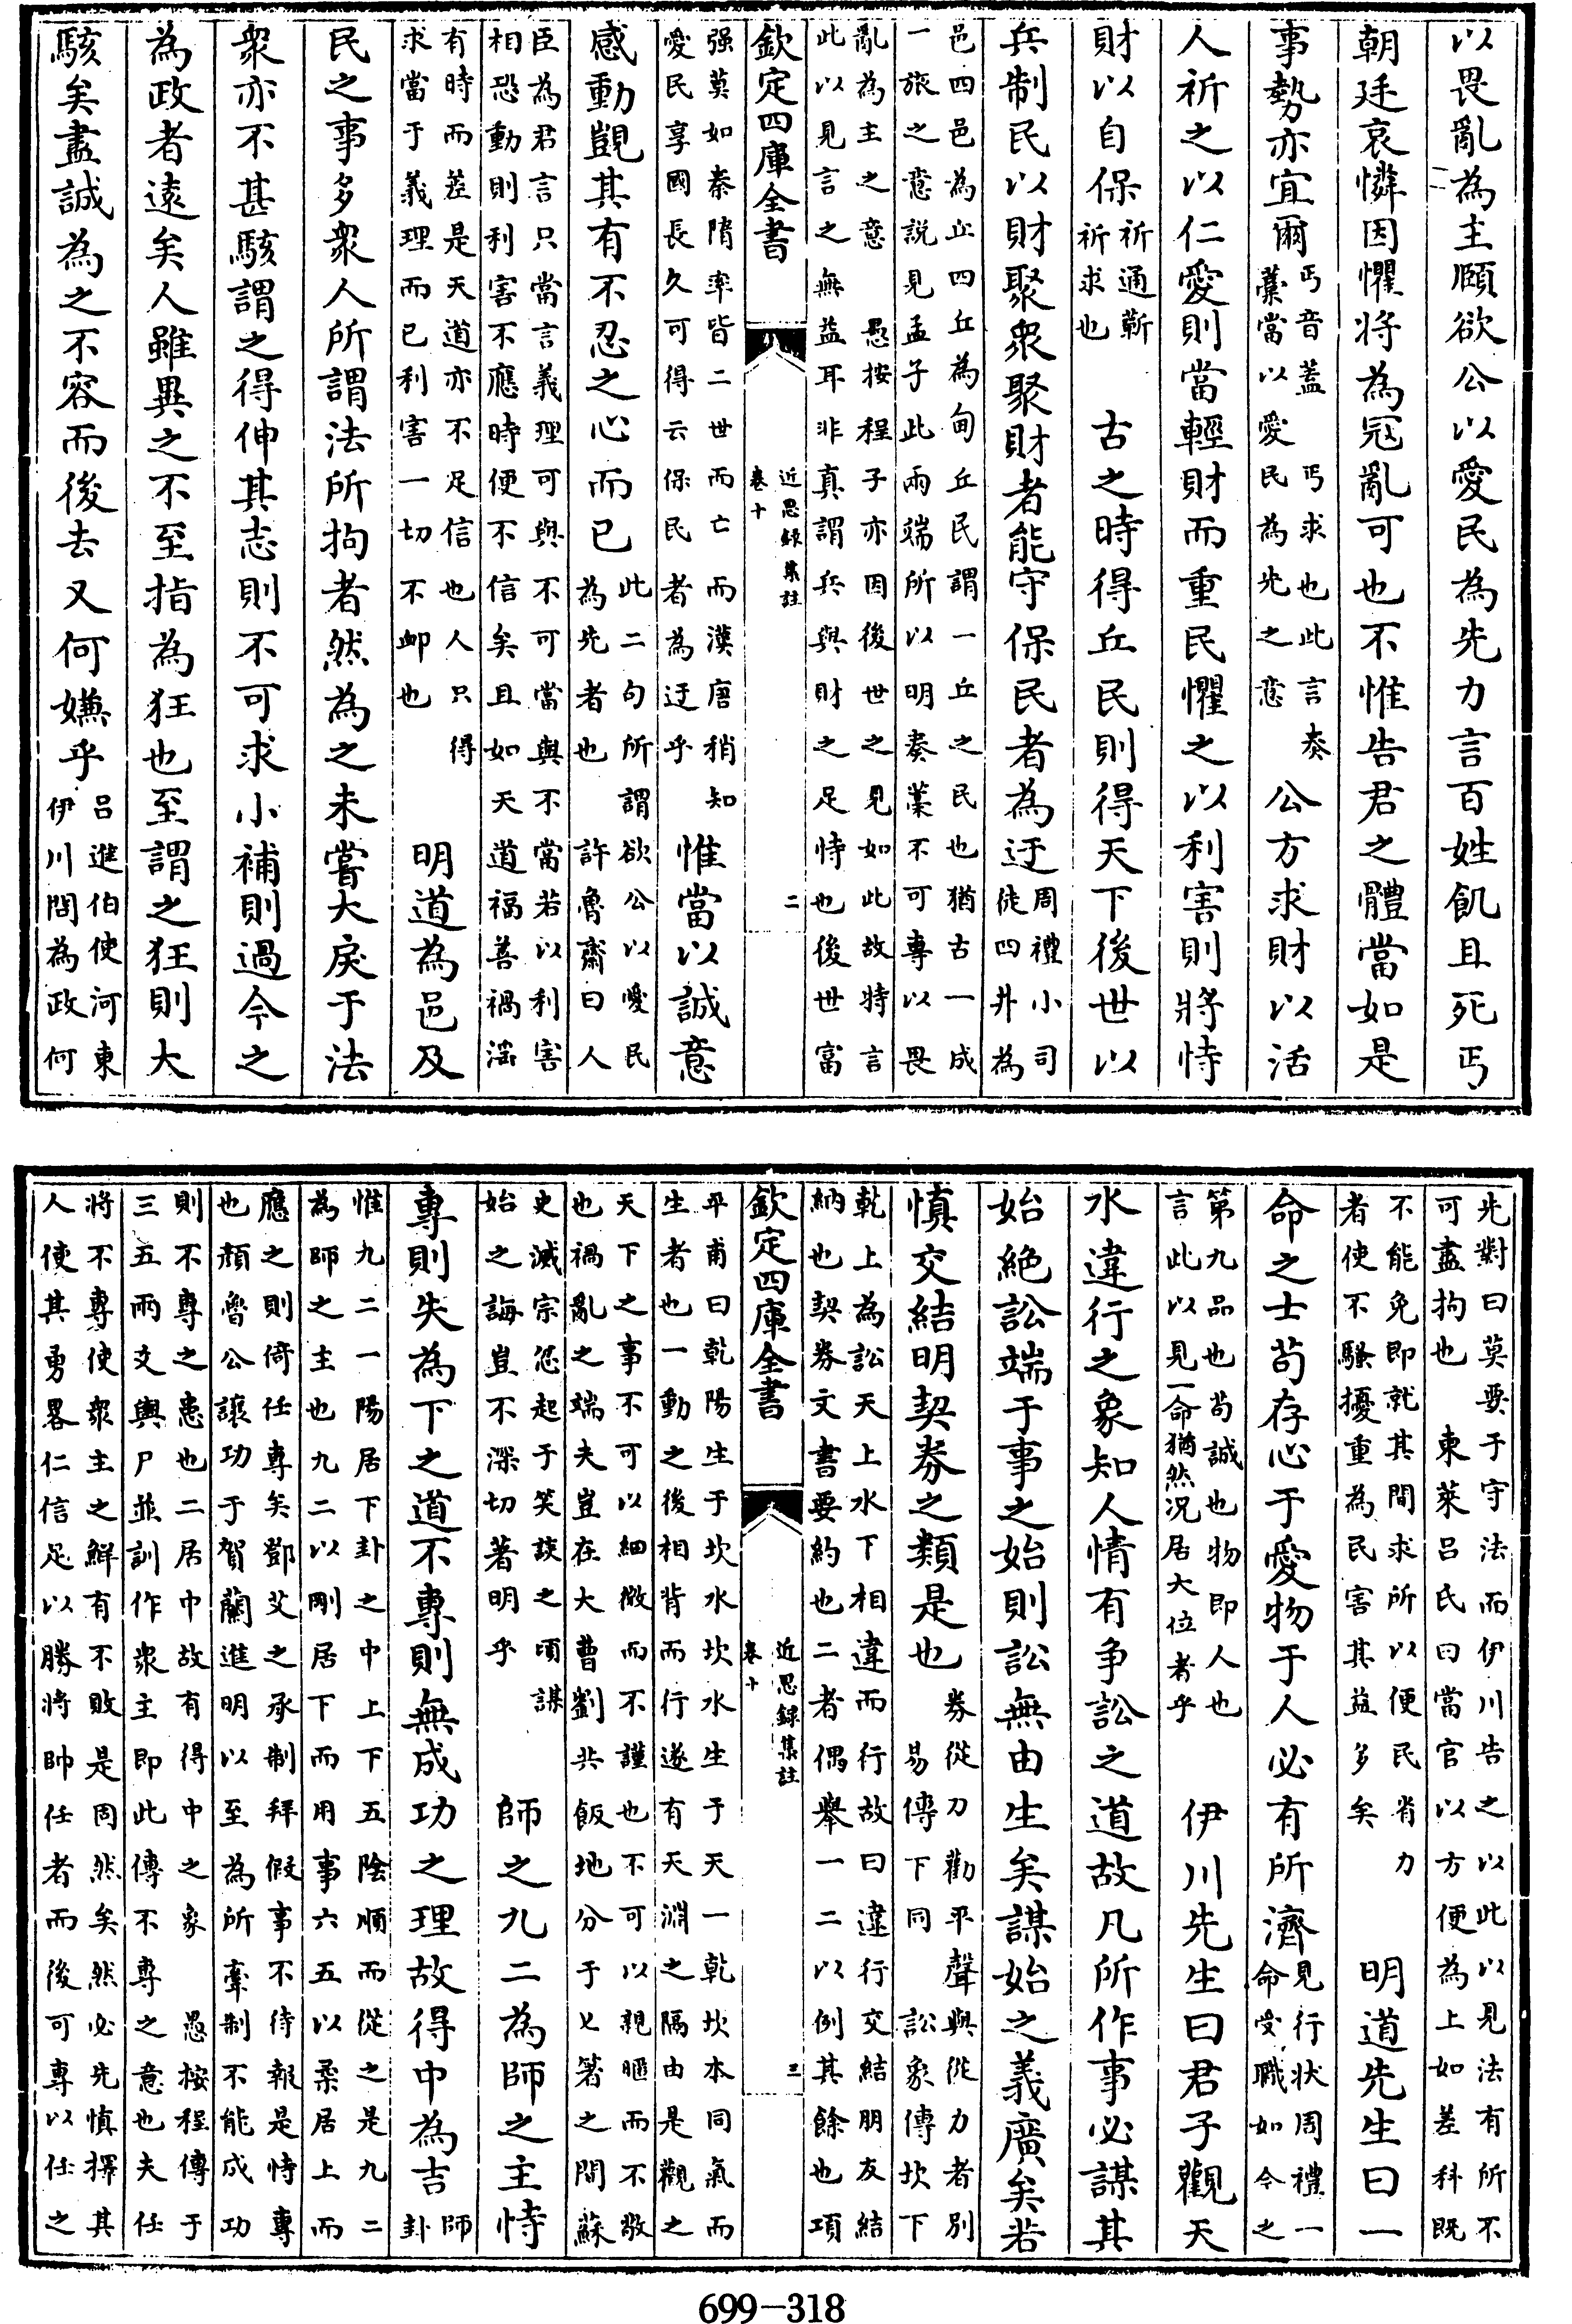 以畏亂為主頤欲公以愛民為先力言百姓飢且死丐
朝廷哀憐因懼將為冦亂可也不惟告君之體當如是
事勢亦宜爾丐音蓋丐求也此言奏藁當以愛民為先之意公方求財以活
人祈之以仁愛則當輕財而重民懼之以利害則將恃
財以自保祈通蘄祈求也古之時得丘民則得天下後世以
兵制民以財聚衆聚財者能守保民者為迂周禮小司徒四井為
邑四邑為丘四丘為甸丘民謂一丘之民也猶古一成
一旅之意說見孟子此兩端所以明奏藁不可專以畏
亂為主之意愚按程子亦因後世之見如此故特言
此以見言之無益耳非真謂兵與財之足恃也後世富
欽定四庫全書
近思録集註
卷十
二
强莫如秦隋率皆二世而亡而漢唐稍知
愛民享國長久可得云保民者為迂乎惟當以誠意
感動覬其有不忍之心而已此二句所謂欲公以愛民為先者也許魯齋曰人
臣為君言只當言義理可與不可當與不當若以利害
相恐動則利害不應時便不信矣且如天道福善禍淫
有時而差是天道亦不足信也人只得
求當于義理而已利害一切不卹也明道為邑及
民之事多衆人所謂法所拘者然為之未嘗大戾于法
衆亦不甚駭謂之得伸其志則不可求小補則過今之
為政者遠矣人雖異之不至指為狂也至謂之狂則大
駭矣盡誠為之不容而後去又何嫌乎吕進伯使河東伊川問為政何
先對曰莫要于守法而伊川告之以此以見法有所不
可盡拘也東萊吕氏曰當官以方便為上如差科既
不能免即就其間求所以便民省力
者使不騷擾重為民害其益多矣明道先生曰一
命之士苟存心于愛物于人必有所濟見行状周禮一命受職如今之
第九品也苟誠也物即人也
言此以見一命猶然况居大位者乎伊川先生曰君子觀天
水違行之象知人情有争訟之道故凡所作事必謀其
始絶訟端于事之始則訟無由生矣謀始之義廣矣若
慎交結明契券之類是也券從刀勸平聲與從力者别易傳下同訟象傳坎下
乾上為訟天上水下相違而行故曰違行交結朋友結
納也契券文書要約也二者偶舉一二以例其餘也項
欽定四庫全書
近思録集註
卷十
三
平甫曰乾陽生于坎水坎水生于天一乾坎本同氣而
生者也一動之後相背而行遂有天淵之隔由是觀之
天下之事不可以細微而不謹也不可以親暱而不敬
也禍亂之端夫豈在大曹劉共飯地分于匕箸之間蘇
史滅宗忿起于笑談之頃謀
始之誨豈不深切著明乎師之九二為師之主恃
專則失為下之道不專則無成功之理故得中為吉師卦
惟九二一陽居下卦之中上下五陰順而從之是九二
為師之主也九二以剛居下而用事六五以柔居上而
應之則倚任專矣鄧艾之承制拜假事不待報是恃專
也顏魯公讓功于賀蘭進明以至為所牽制不能成功
則不專之患也二居中故有得中之象愚按程傳于
三五兩爻輿尸並訓作衆主即此傳不專之意也夫任
將不專使衆主之鮮有不敗是固然矣然必先慎擇其
人使其勇畧仁信足以勝將帥任者而後可專以任之
699-318